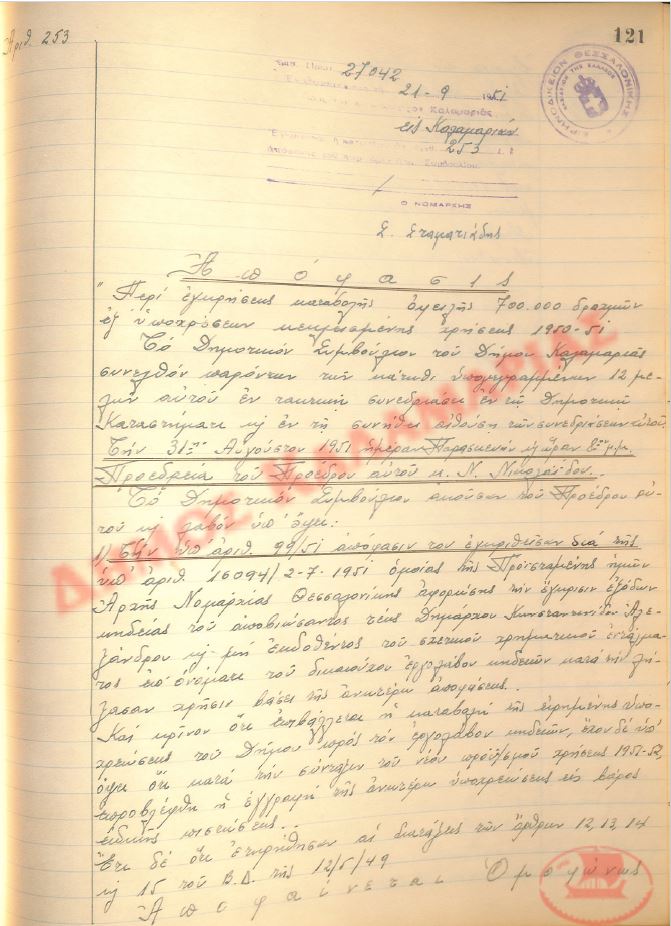 Ἀριθ. 253
121
27042
21-9 1951
εἰς Καλαμαριάν
253
ΕΙΡΗΝΟΔΙΚΕΙΟΝ ΘΕΣΣΑΛΟΝΙΚΗΣ
Ο ΝΟΜΑΡΧΗΣ
Σ. Σταματιάδης
Ἀπόφασις
"Περί ἐγκρίσεως καταβολῆς ὀφειλῆς 700.000 δραχμῶν
ἐξ ὑποχρέσεων κεκλεισμένης χρήσεως 1950-51
Τό Δημοτικόν Συμβούλιον τοῦ Δήμου Καλαμαριᾶς
συνελθόν παρόντων τῶν κάτωθι ὑπογεγραμμένων 12 με-
λῶν αὐτοῦ ἐν τακτικῇ συνεδριάσει ἐν τῷ Δημοτικῷ
Καταστήματι κ ἐν τῇ συνήθει αἰθούσῃ τῶν συνεδριάσεων αὐτοῦ.
Τήν 31ην Αὐγούστου 1951 ἡμέραν Παρασκευήν κ ὥραν μμ.
Προεδρεία τοῦ Προέδρου αὐτοῦ κ. Ν. Νικολαΐδου..
Τό Δημοτικόν Συμβούλιον ἀκοῦσαν τοῦ Προέδρου αὐ-
τοῦ κ λαβόν ὑπ' ὄψει:
1) Τήν ὑπ' ἀριθ. 99/51 ἀπόφασιν του ἐγκριθεῖσαν διά τῆς
ὑπ' ἀριθ. 16094/2-7-1951 ὁμοίας τῆς Προϊσταμένης ἡμῶν
Ἀρχῆς Νομαρχίας Θεσσαλονίκης ἀφορώσης τήν ἔγκρισιν ἐξόδων
κηδείας τοῦ ἀποβιώσαντος τέως Δημάρχου Κωνσταντινίδου Ἀλε-
ξάνδρου κ μή ἐκδοθέντος τοῦ σχετικοῦ χρηματικοῦ ἐντάλμα-
τος ἐπ' ὀνόματι τοῦ δικαιούχου ἐργολάβου κηδειῶν κατά τήν λή-
ξασαν χρῆσιν βάσει τῆς ἀνωτέρω ἀποφάσεως..
Καί κρῖνον ὅτι ἐπιβάλλεται ἡ καταβολή τῆς εἰρημένης ὑπο-
χρεώσεως τοῦ Δήμου πρός τόν ἐργολάβον κηδειῶν, ἔχον δέ ὑπ'
ὄψει ὅτι κατά τήν σύνταξιν τοῦ νέου προϋ/σμοῦ χρήσεως 1951-52,
προβλέφθη ἡ ἐγγραφή τῆς ἀνωτέρω ὑποχρεώσεως εἰς βάρος
εἰδικῆς πιστώσεως..
Ἔτι δέ ὅτι ἐτηρήθησαν αἱ διατάξεις τῶν ἄρθρων 12, 13, 14
κ 15 τοῦ Β.Δ. τῆς 12/5/49
Ἀποφαίνεται Ὁμοφώνως
ΔΗΜΟΣ ΚΑΛΑΜΑΡΙΑΣ